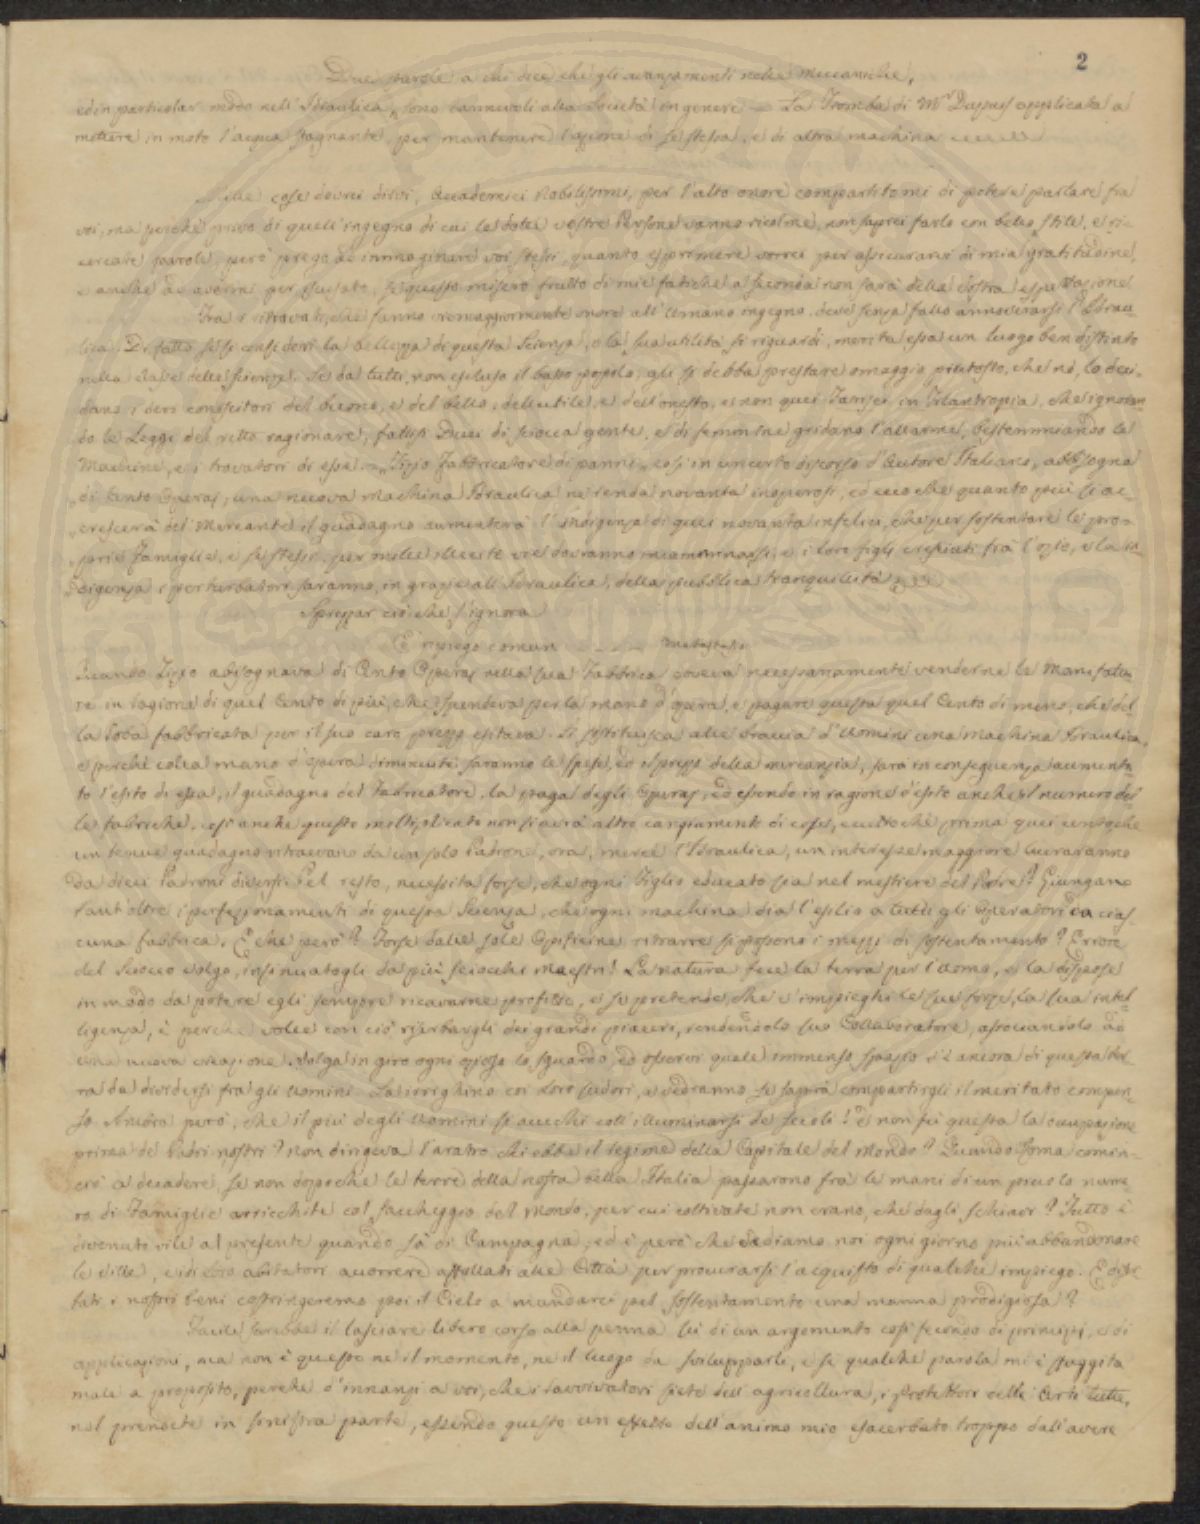 2
Due parole a chi dice che gli avanzamenti nelle meccaniche,
ed in particolar modo nell'Idraulica, sono dannevoli alla Società in genere — La Tromba di Mr Dupuis applicata a
mettere in moto l'acqua stagnante, per mantenere l'azione di se stessa, e di altra machina
cose dovrei dirvi, Accademici Nobilissimi, per l'alto onore compartitomi di potere parlare fra
voi, ma perché privo di quell'ingegno di cui le dotte vostre Persone vanno ricolme, non saprei farlo con bello stile, e ri-
cercate parole, però prego ad immaginare voi stessi, quanto esprimere vorrei per assicurarvi di mia gratitudine,
e anche ad avermi per iscusato, se questo misero frutto di mie fatiche a seconda non sarà della vostra espettazione
Tra i ritrovati, che fanno onore all'Umano ingegno, deve senza fallo annoverarsi l'Idrau-
lica. Di fatto se si consideri la bellezza di questa Scienza, o la sua utilità si riguardi, merita essa un luogo ben distinto
nella classe delle scienze. Se da tutti, non escluso il basso popolo, gli si debba prestare omaggio piuttosto, che nò, lo deci-
dano i veri conoscitori del buono, e del bello, dell'utile, e dell'onesto, e non quei Farisei in Filantropia, che ignoran-
do le Leggi del retto ragionare, fattisi Duci di sciocca gente, e di femmine gridano l'allarme, bestemmiando le
Machine, e i trovatori di esse. — "Tizio Fabbricatore di panni, così in un certo discorso d'Autore Italiano, abbisogna
di Cento Operaj; una nuova machina Idraulica ne renda novanta inoperosi, ed ecco che quanto più si ac-
crescerà del Mercante il guadagno aumenterà l'indigenza di quei novanta infelici, che per sostentare le pro-
prie Famiglie, e se stessi, per mille illecite vie dovranno incamminarsi, e i loro figli cresciuti frà l'ozio, e la in-
digenza i perturbatori saranno, in grazia all'Idraulica, della pubblica tranquillità
Sprezzar ciò che s'ignora
È ripiego comun - - - - Metastasio
Quando Tizio abisognava di Cento Operaj nella sua Fabbrica doveva necessariamente venderne le Manifattu-
re in ragione di quel Cento di più, che spendeva per la mano d'opera, e pagare questa quel Cento di meno, che del-
la roba fabbricata per il suo caro prezzo esitava. Si sostituisca alle braccia d'Uomini una machina Idraulica,
e perché colla mano d'opera diminuite saranno le spese, ed il prezzo della mercanzia, sarà in conseguenza aumenta-
to l'esito di essa, il guadagno del Fabricatore, la paga degli Operaj, ed essendo in ragione d'esito anche il numero del-
le fabriche, così anche queste moltiplicate non si avrà altro cangiamento di cose, eccetto che prima quei cento che
un tenue guadagno ritraevano da un solo Padrone, ora, mercé l'Idraulica, un interesse maggiore lucraranno
da dieci Padroni diversi. Del resto, necessita forse, che ogni Figlio educato sia nel mestiere del Padre? Giungano
tant'oltre i perfezionamenti di questa Scienza, che ogni machina dia l'esilio a tutti gli Operatori da cias-
cuna fabbrica. E che però? Forse dalle sole Opificine ritrarre si possono i mezzi di sostentamento? Errore
del sciocco volgo, insinuatogli da più sciocchi Maestri! La natura fece la terra per l'Uomo, e la dispose
in modo da potere egli sempre ricavarne profitto, e se pretende, che v'impieghi le sue forze, la sua intel-
ligenza, è perché volle con ciò riserbargli dei grandi piaceri, rendendolo suo Collaboratore, associandolo ad
una nuova creazione. Volga in giro ogni ozioso lo sguardo, ed osservi quale immenso spazio v'è ancora di questa ter-
ra da dividersi frà gli Uomini. La irrighino coi loro sudori, e vedranno se saprà compartirgli il meritato compen-
so. Ancora però, che il più degli Uomini si acciechi coll'illuminarsi de' secoli! E non fu questa la occupazione
prima de' Padri nostri? Non dirigeva l'aratro chi ebbe il regime della Capitale del Mondo? Quando Roma comin-
ciò a decadere, se non dopoche le terre della nostra bella Italia passarono frà le mani di un piccolo nume-
ro di Famiglie arricchite col saccheggio del Mondo, per cui coltivate non erano, che dagli schiavi? Tutto è
divenuto vile al presente quando sà di Campagna, ed è però che vediamo noi ogni giorno più abbandonare
le ville, e di loro abitatori accorrere affollati alle Città per procurarsi l'acquisto di qualche impiego.
i nostri beni costringeremo poi il Cielo a mandarci pel sostentamento una manna prodigiosa?
Facile sarebbe il lasciare libero corso alla penna lei di un argomento così fecondo di principj, e di
applicazioni, ma non è questo nè il momento, nè il luogo da svilupparli, e se qualche parola mi è sfuggita
male a proposito, perché d'innanzi a voi, che i ravvivatori siete dell'agricoltura, i Protettori delle Arti tutte,
nol prendete in sinistra parte, essendo questo un effetto dell'animo mio esacerbato troppo dall'avere